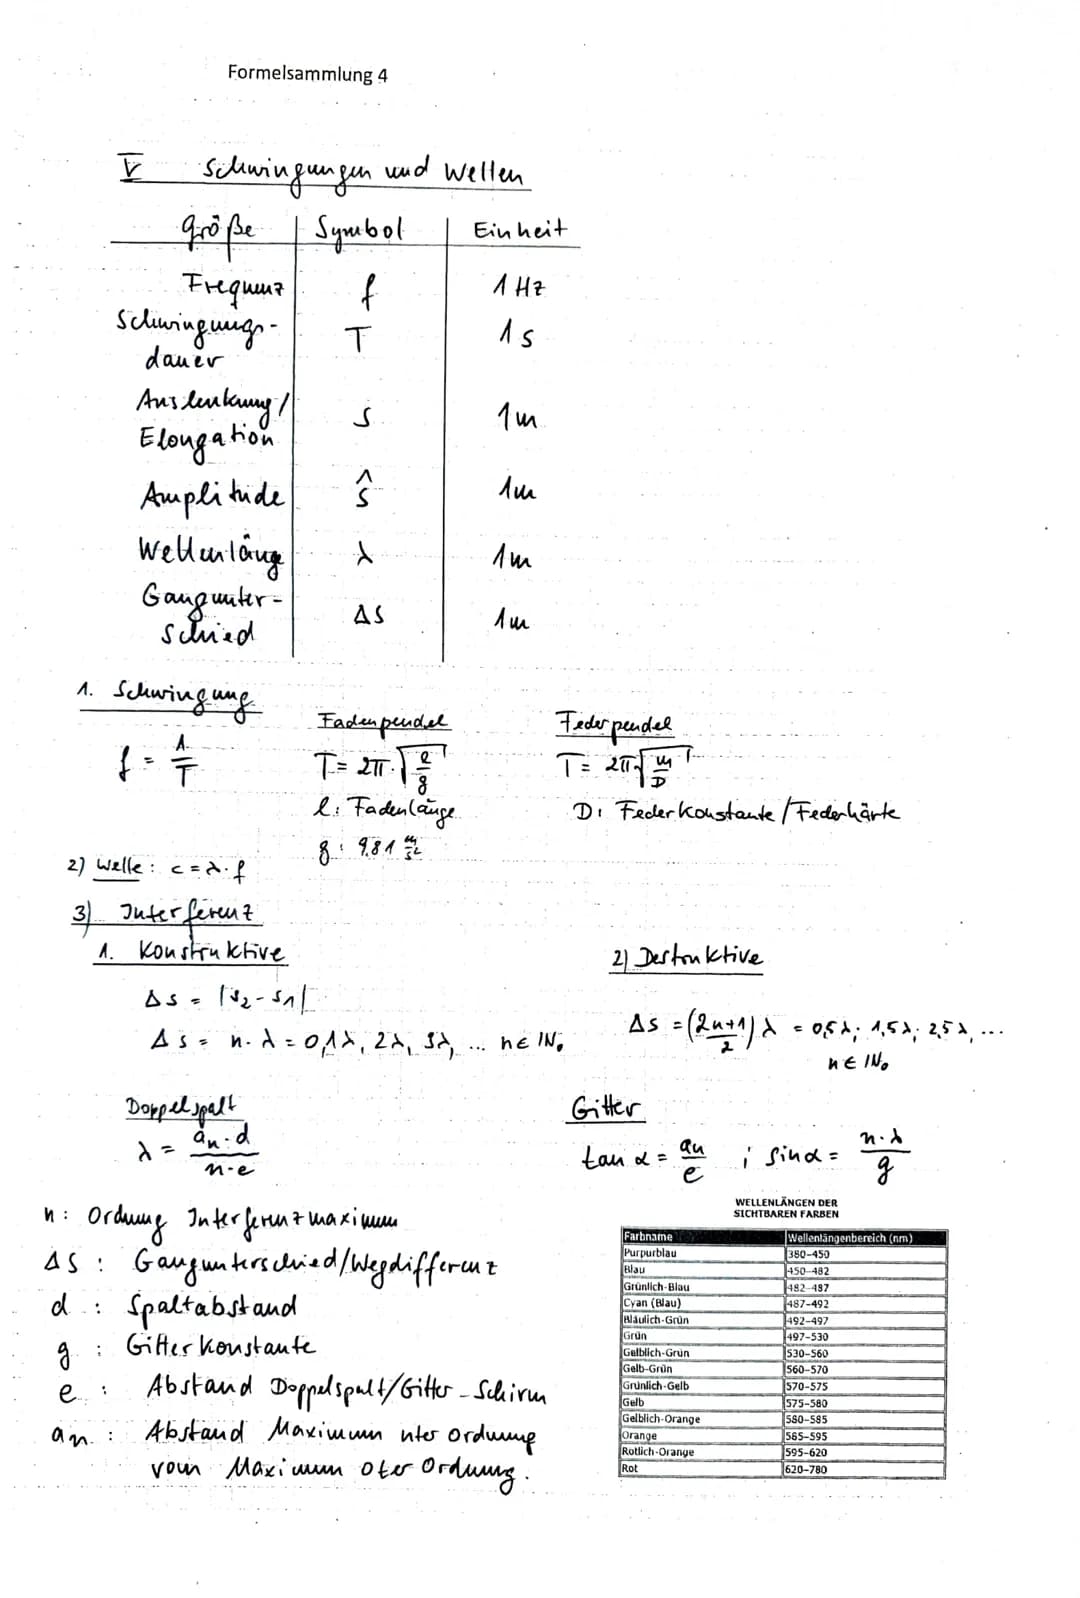 Formelsammlung 4
V Schwingungen und Wellen
Größe Symbol Einheit
Frequenz f 1 Hz
Schwingungs- T 1 s
dauer
Auslenkung/ s 1m
Elongation
Amplitude ŝ 1m
Wellenlänge λ 1m
Gangunter- Δs 1m
schied
1. Schwingung
Fadenpendel Federpendel
f = 1/T T = 2π·√(l/g) T = 2π√(m/D)
l: Fadenlänge D: Federkonstante/Federhärte
g: 9,81 m/s²
2) Welle: c = λ·f
3) Interferenz
1. Konstruktive 2) Destruktive
Δs = |s₂-s₁|
Δs = n·λ = 0,1λ, 2λ, 3λ, ... n∈ℕ₀
Δs = (2n+1/2) λ = 0,5λ; 1,5λ; 2,5λ, ...
n∈ℕ₀
Doppelspalt Gitter
λ = aₙ·d/n·e tan α = aₙ/e ; sin α = n·λ/g
n: Ordnung Interferenzmaximum
Δs: Gangunterschied/Wegdifferenz
d: Spaltabstand
g: Gitterkonstante
e: Abstand Doppelspalt/Gitter-Schirm
aₙ: Abstand Maximum nter Ordnung
vom Maximum 0ter Ordnung.
WELLENLÄNGEN DER
SICHTBAREN FARBEN
Farbname Wellenlängenbereich (nm)
Purpurblau 380-450
Blau 450-482
Grünlich-Blau 482-487
Cyan (Blau) 487-492
Bläulich-Grün 492-497
Grün 497-530
Gelblich-Grün 530-560
Gelb-Grün 560-570
Grünlich-Gelb 570-575
Gelb 575-580
Gelblich-Orange 580-585
Orange 585-595
Rötlich-Orange 595-620
Rot 620-780